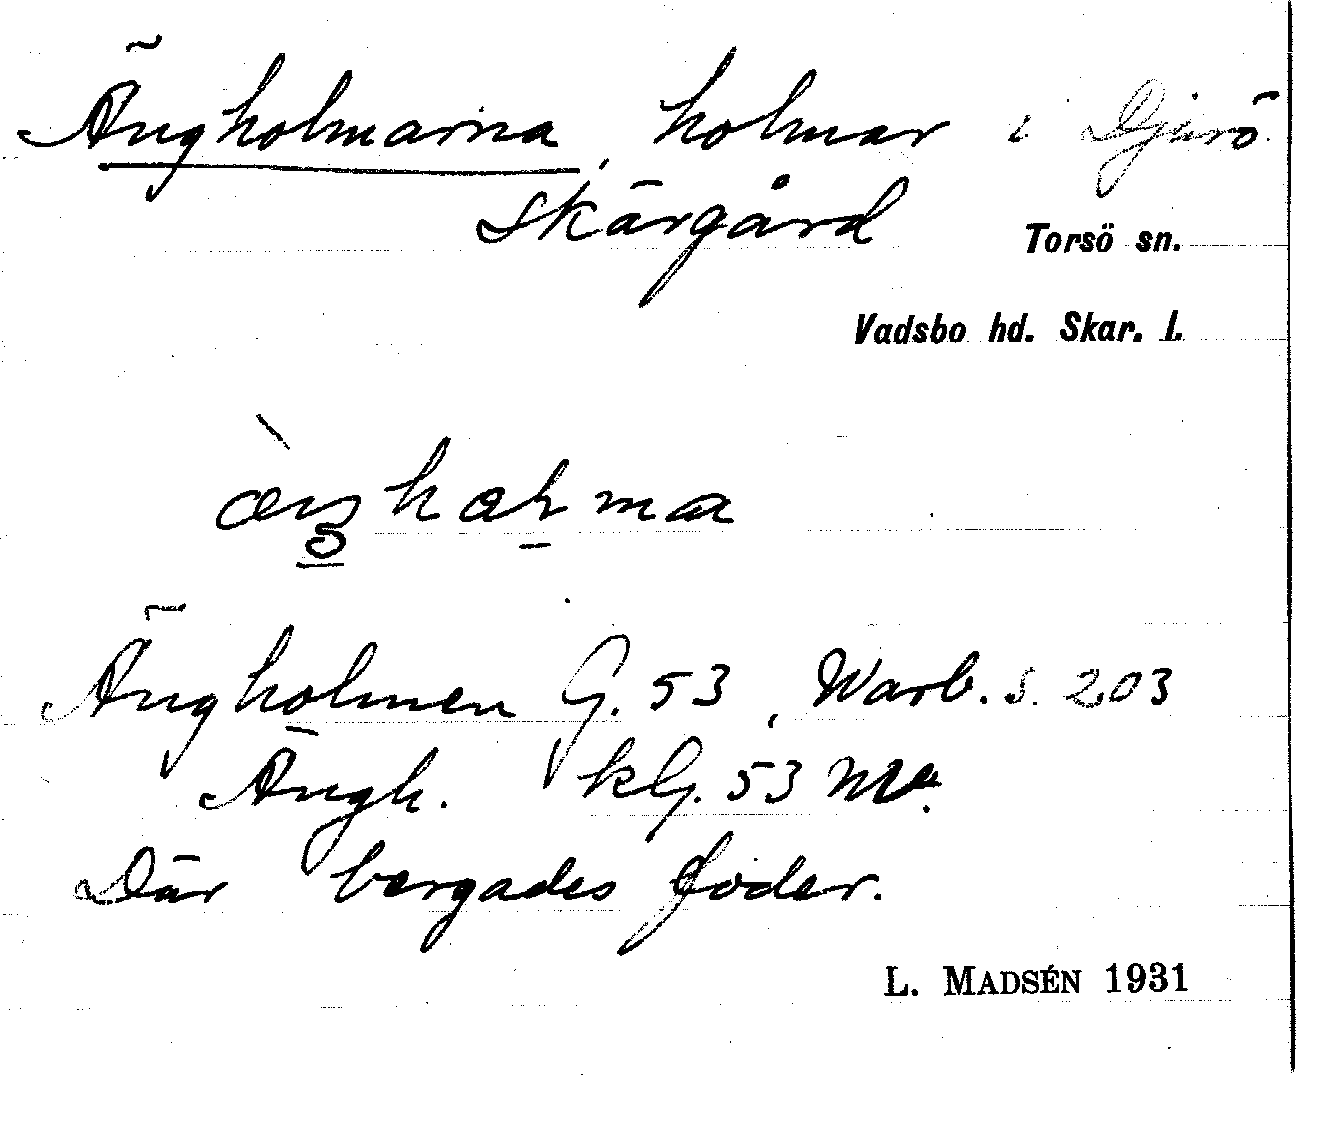 Ängholmarna, holmar i Djurö
skärgård
Torsö sn.
Vadsbo hd. Skar. l.
Ängholmen G. 53, Warb. s. 203
Ängh. kG. 53
Där bergades foder.
L. MADSÉN 1931